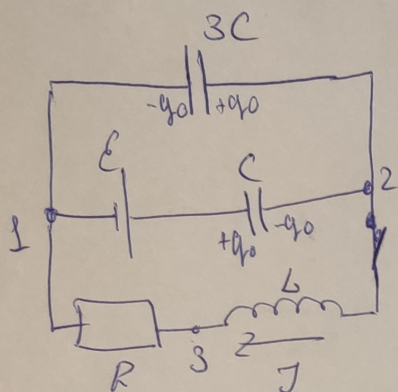 3C
-q0 +q0
Ɛ C
2
1 +q0 -q0
L
R 3 2
J